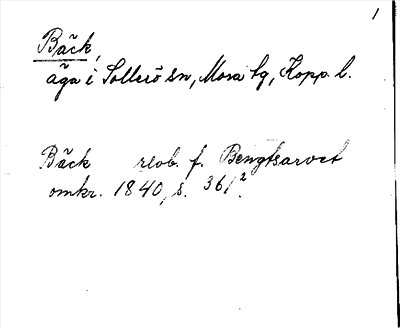 1
Bäck,
äga i Sollerö sn, Mora tg, Kopp. l.
Bäck relob. f. Bengtsarvet
omkr. 1840, s. 361².